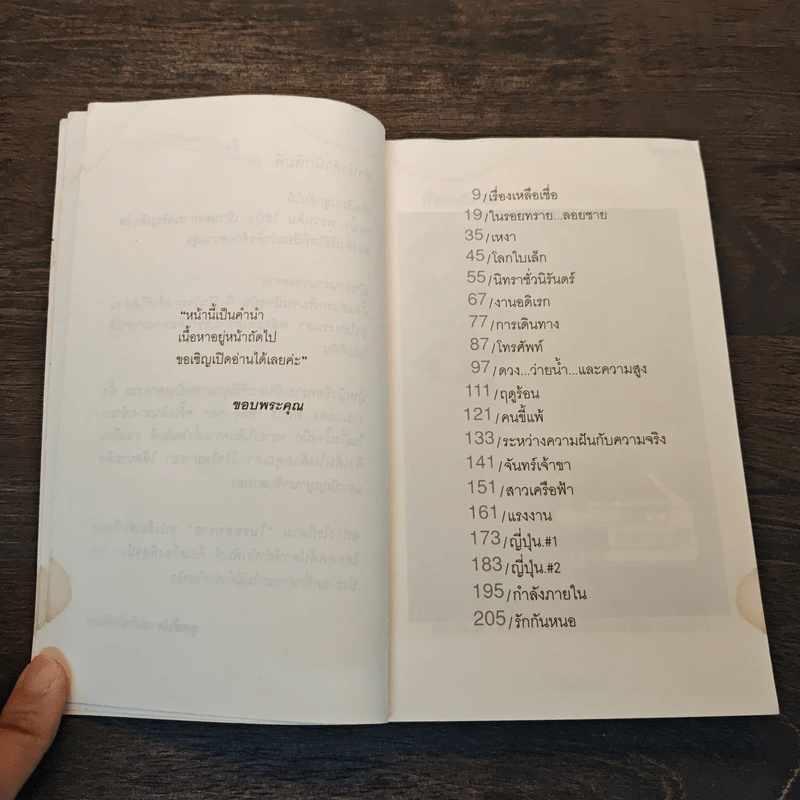 “หน้านี้เป็นคำนำ
เนื้อหาอยู่หน้าถัดไป
ขอเชิญเปิดอ่านได้เลยค่ะ”
ขอบพระคุณ
9/เรื่องเหลือเชื่อ
19/ในรอยทราย...ลอยชาย
35/เหงา
45/โลกใบเล็ก
55/นิทราชั่วนิรันดร์
67/งานอดิเรก
77/การเดินทาง
87/โทรศัพท์
97/ดวง...ว่ายน้ำ...และความสูง
111/ฤดูร้อน
121/คนขี้แพ้
133/ระหว่างความฝันกับความจริง
141/จันทร์เจ้าขา
151/สาวเครือฟ้า
161/แรงงาน
173/ญี่ปุ่น.#1
183/ญี่ปุ่น.#2
195/กำลังภายใน
205/รักกันหนอ